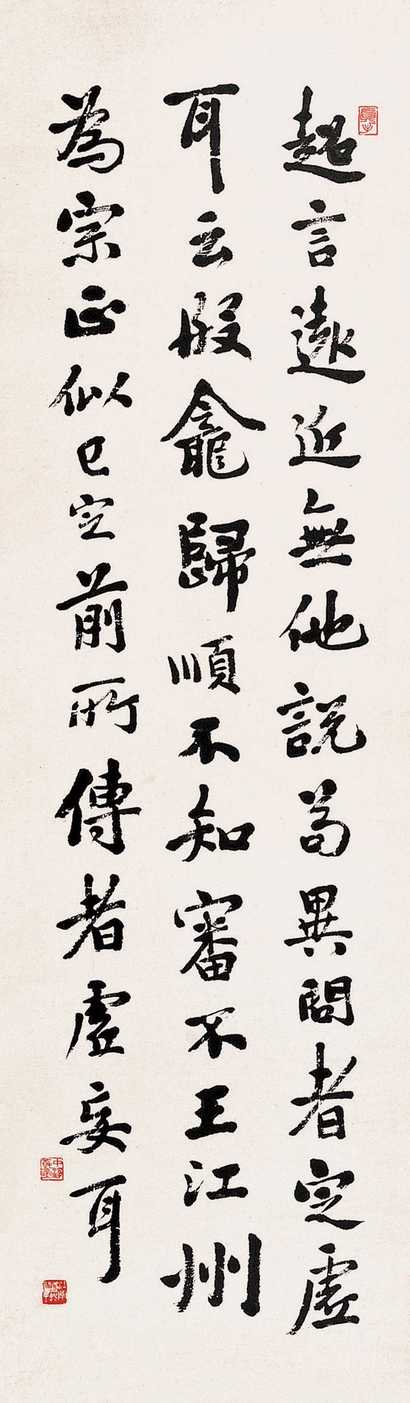 超言遠近無他說苟異問者定虛
耳云殷龕歸順不知審不王江州
為宗正似已定前所傳者虛妄耳